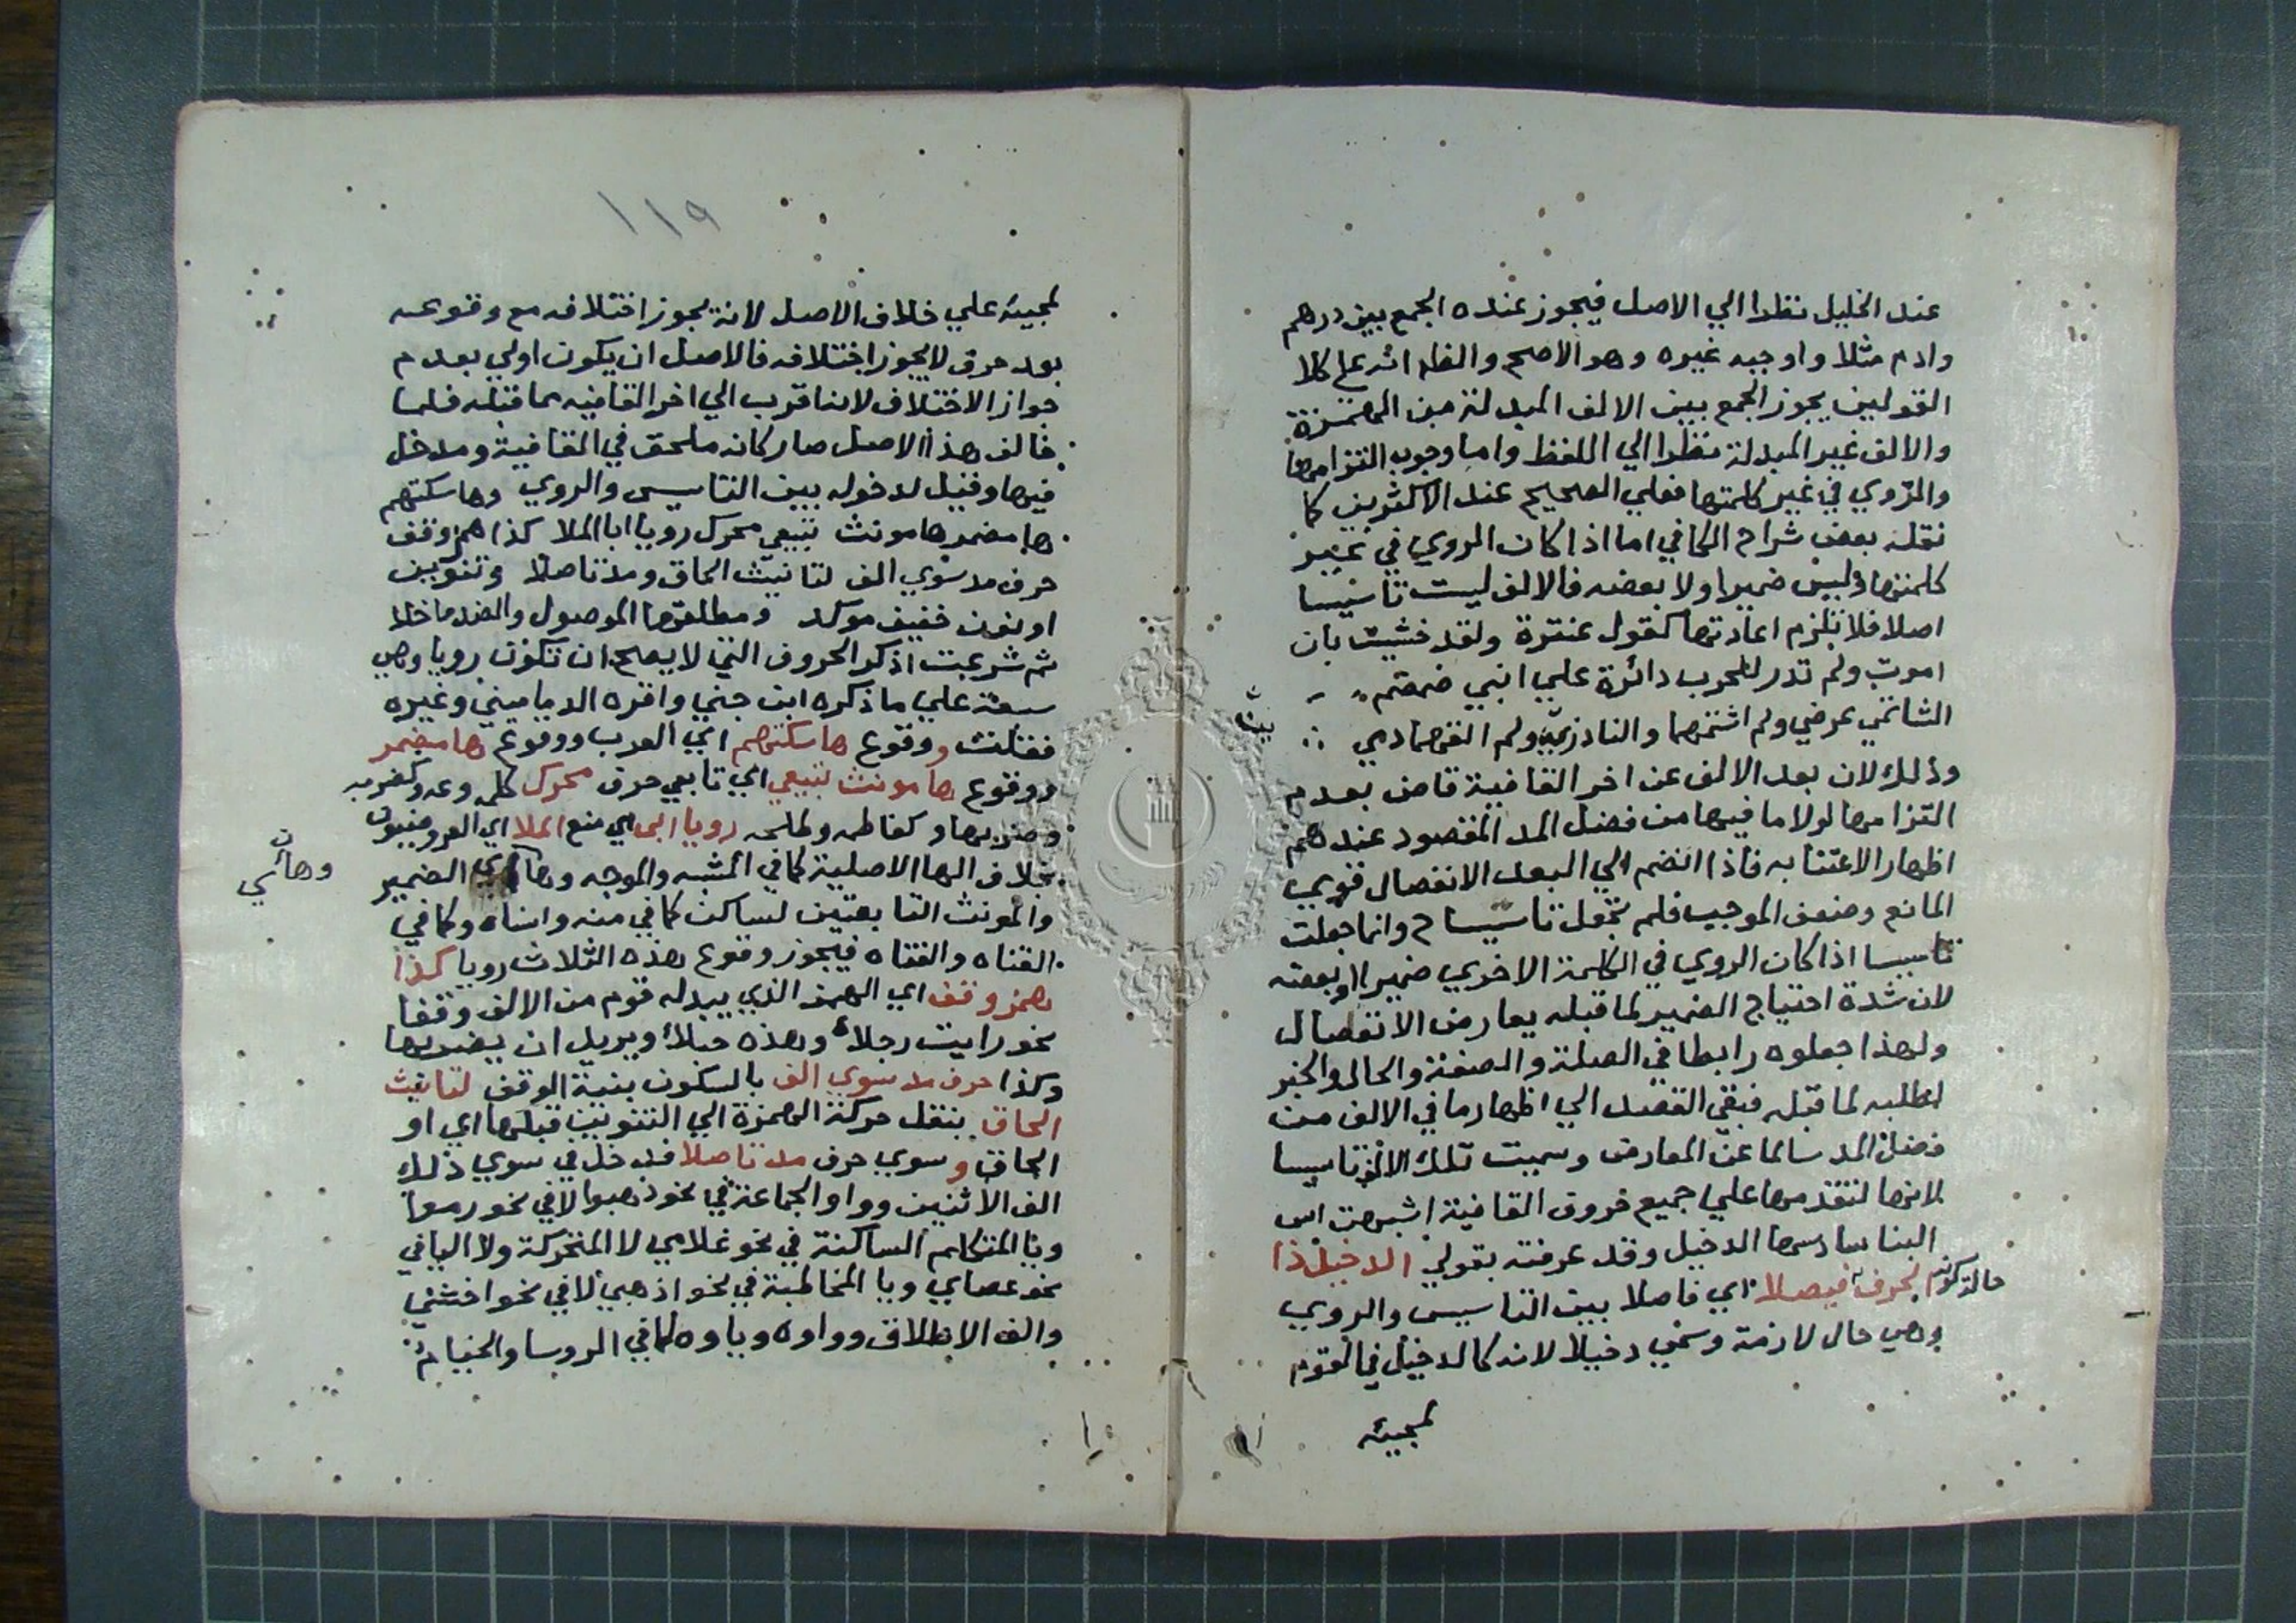 عند الخليل نظرا الي الاصل فيجوز عنده الجمع بين درهم
وادم مثلا واوجبه غيره وهو الاصح والظاهر انه علي كلا
القولين يجوز الجمع بين الالف المبدلة من الهمزة
والالف غير المبدلة نظرا الي اللفظ واما وجوب التزامها
والروي في غير كلمتها فعلي الصحيح عند الاكثرين كما
نقله بعض شراح الكافي اما اذا كان الروي في غير
كلمتها وليس ضميرا ولا بعضه فالالف ليست تاسيسا
اصلا فلا تلزم اعادتها كقول عنترة ولقد خشيت بان
اموت ولم تدر للحرب دائرة علي ابني ضمضم
بيت
الشاتمي عرضي ولم اشتمهما والناذرين ولم القهما دمي
وذلك لان بعد الالف عن اخر القافية قاض بعدم
التزامها لولا ما فيها من فضل المد المقصود عندهم
اظهار الاعتنا به فاذا انضم الي البعد الانفصال قوي
المانع وضعف الموجب فلم تجعل تاسيسا ح وانما جعلت
تاسيسا اذا كان الروي في الكلمة الاخري ضميرا او بعضه
لان شدة احتياج الضمير لما قبله يعارض الانفصال
ولهذا جعلوه رابطا في الصلة والصفة والحال والخبر
لطلبه لما قبله فبقي القصد الي اظهار ما في الالف من
فضل المد سالما عن المعارض وسميت تلك الالف تاسيسا
لانها لتقدمها علي جميع حروف القافية اشبهت اس
البنا سادسها الدخيل وقد عرفته بقولي الدخيل ذا
حالة كونه الحرف فيصلا اي فاصلا بين التاسيس والروي
وهي حال لازمة وسمي دخيلا لانه كالدخيل في القوم
لمجيئه
١١٩
لمجيئه علي خلاف الاصل لانه يجوز اختلافه مع وقوعه
بعد حرف لا يجوز اختلافه فالاصل ان يكون اولي بعدم
جواز الاختلاف لانه اقرب الي اخر القافيه مما قبله فلما
خالف هذا الاصل صار كانه ملحق في القافية ومدخل
فيها وقيل لدخوله بين التاسيس والروي وها سكتهم
ها مضمر ها مونث تبيعي محرك رويا ابا الملا كذا همز وقف
حرف مد سوي الف لتانيث الحاق ومد تاصلا وتنوين
او نون خفيف موكد ومطلقها الموصول والضد ما خلا
ثم شرعت اذكر الحروف التي لا يصلح ان تكون رويا وهي
سبعة علي ما ذكره ابن جني واقره الدماميني وغيره
فقلت ووقوع ها سكتهم اي العرب ووقوع ها مضمر
ووقوع ها مونث تبيعي اي تابعي حرف محرك كله وعه وكضربه
وضربها وكفاطمه وطلحه رويا ابي اي منع الملا اي العروضيون
بخلاف الها الاصلية كما في المشبه والموجه وهائي الضمير
وهائي
والمونث التابعتين لساكن كما في منه وابناه وكما في
القناه والفتاه فيجوز وقوع هذه الثلاث رويا كذا
همز وقف اي الهمز الذي يبدله قوم من الالف وقفا
نحو رايت رجلأ وهذه حبلأ ويريد ان يضربها
وكذا حرف مد سوي الف بالسكون بنية الوقف لتانيث
الحاق بنقل حركة الهمزة الي التنوين قبلها اي او
الحاق وسوي حرف مد تاصلا فدخل في سوي ذلك
الف الاثنين وواو الجماعة في نحو ذهبوا لا في نحو رموا
ويا المتكلم الساكنة في نحو غلامي لا المتحركة ولا اليا في
نحو عصاي ويا المخاطبة في نحو اذهبي لا في نحو اخشي
والف الاطلاق وواوه وياوه كما في الروسا والخيام